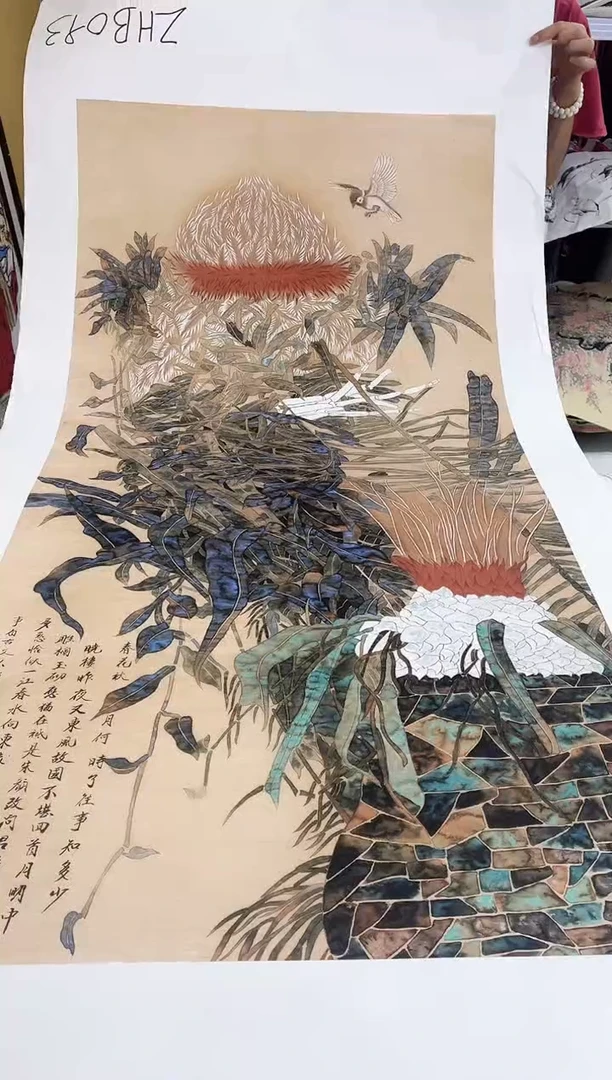 ZHB093
春花秋月何時了往事知多少
樓昨夜又東風故國不堪回首月明中
雕欄玉砌應猶在祇是朱顔改問君
多愁恰似一江春水向東